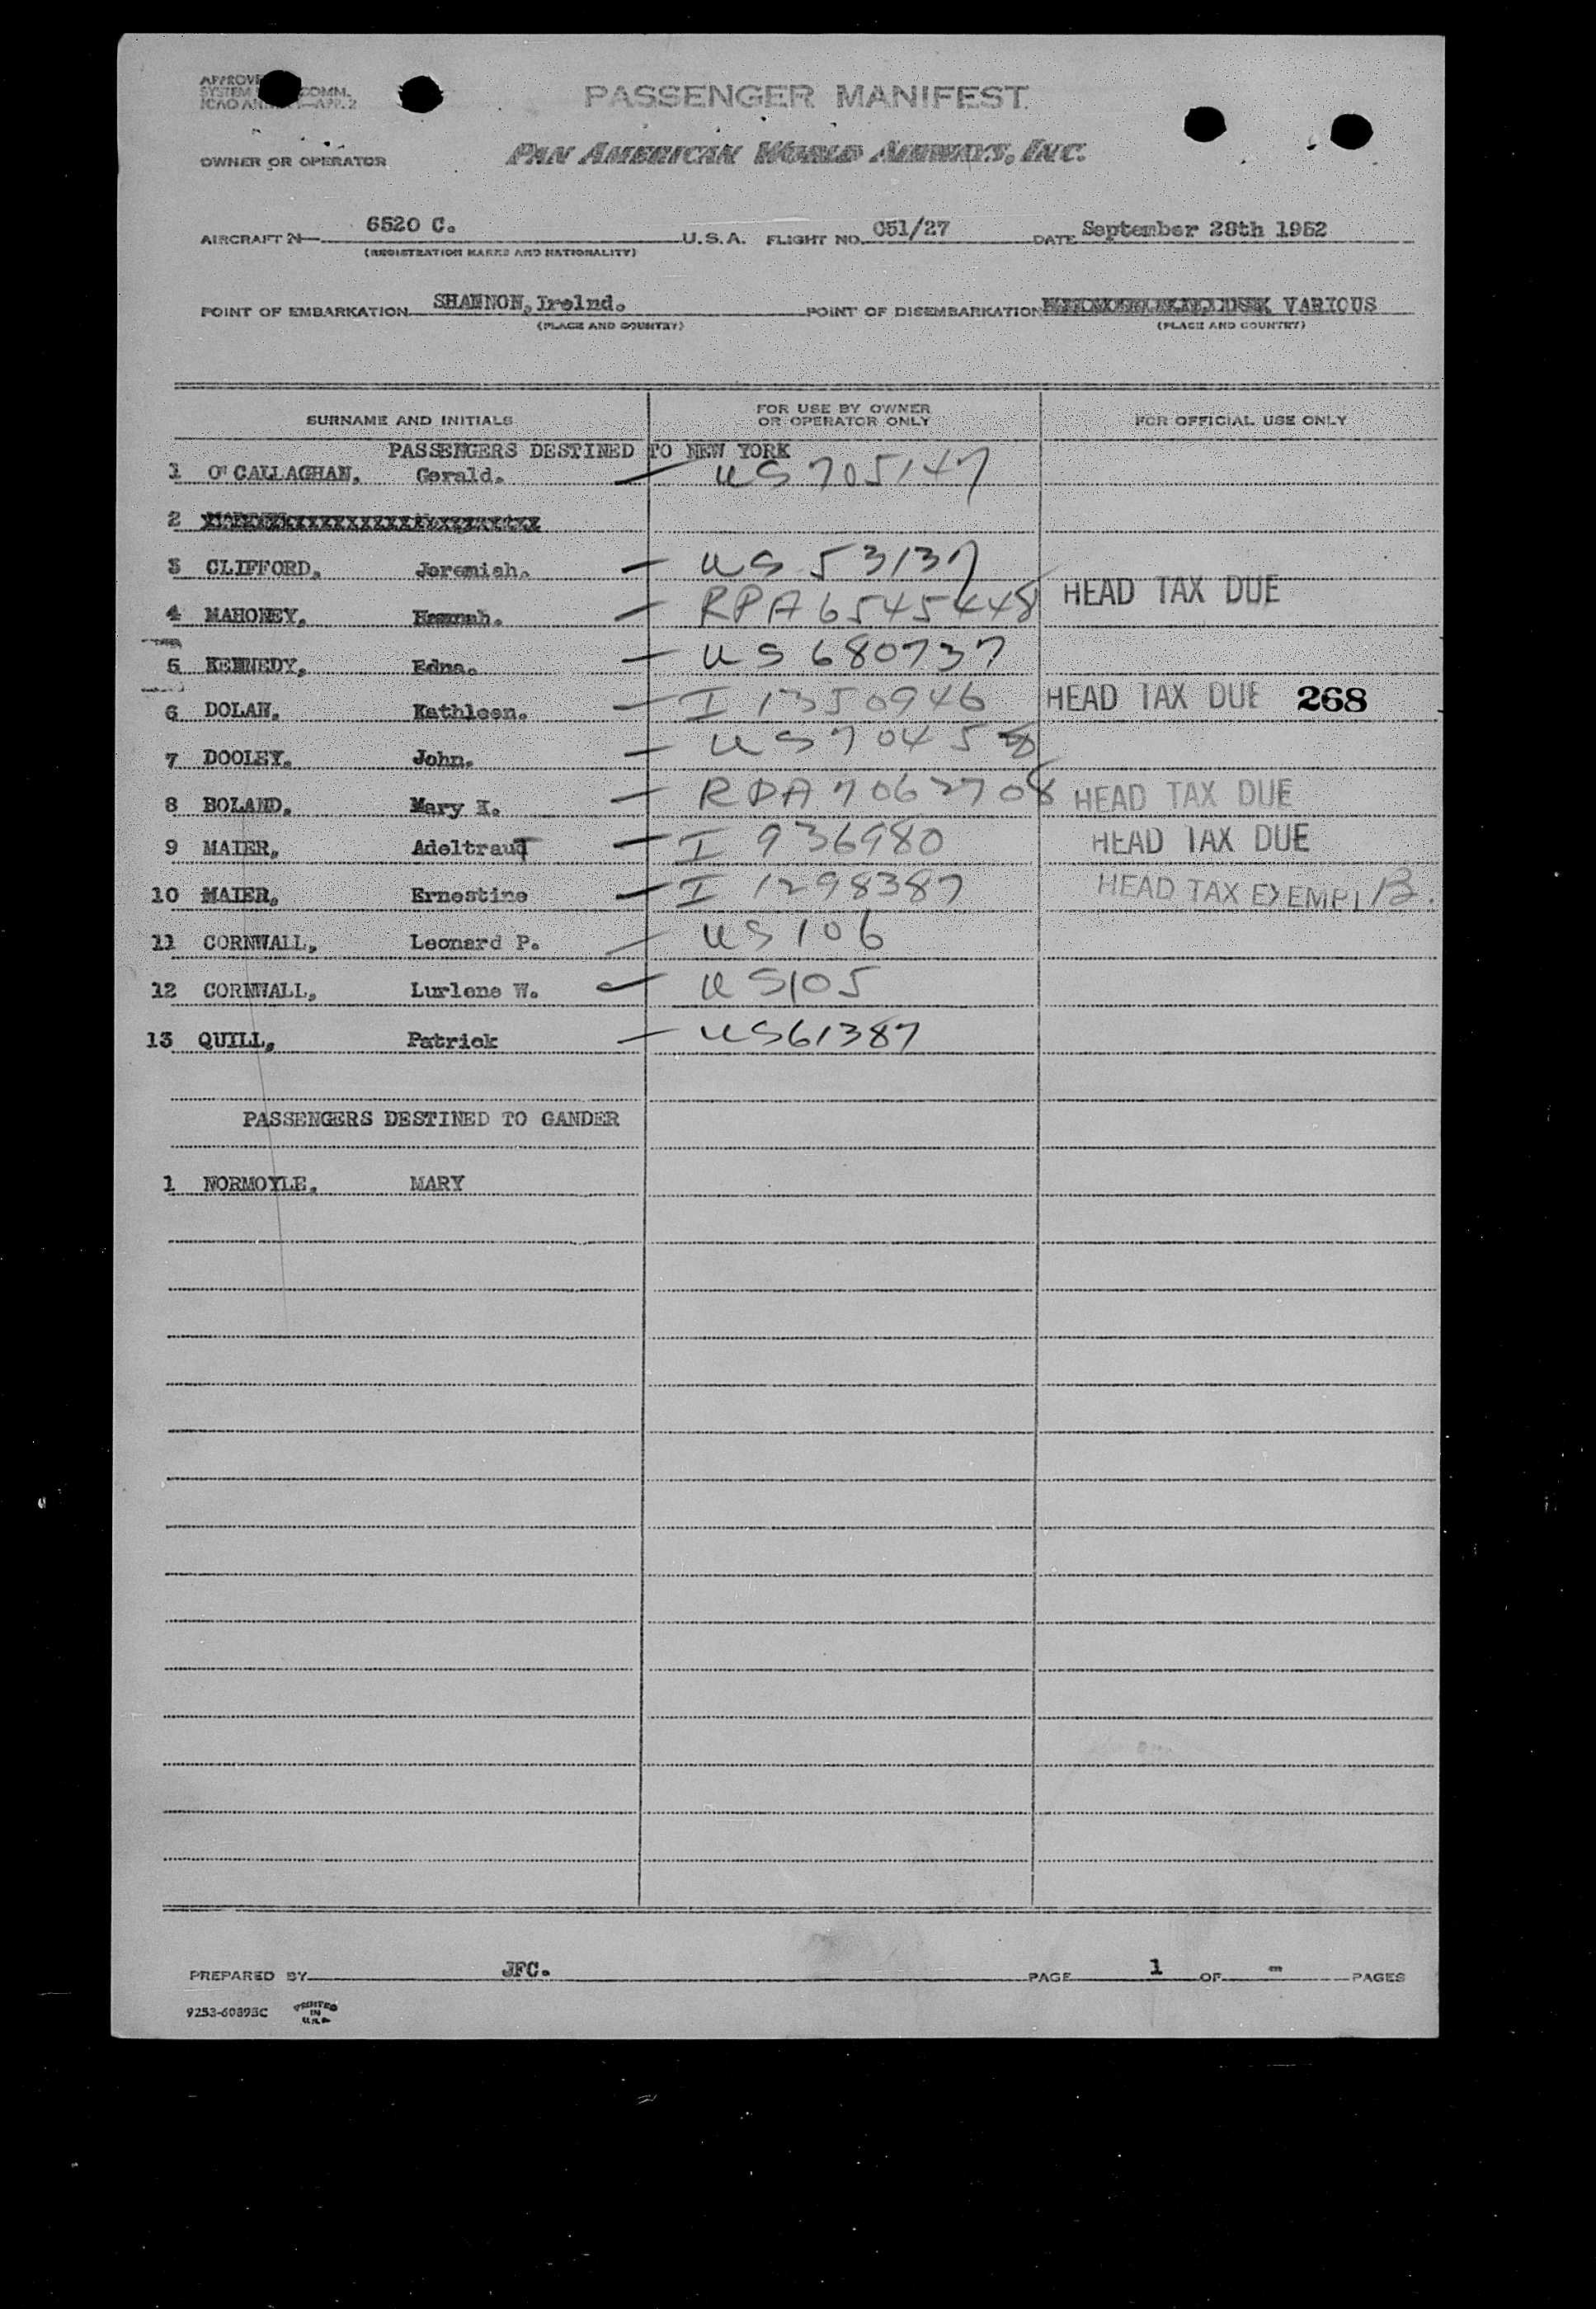 PASSENGER MANIFEST
OWNER OR OPERATOR PAN AMERICAN WORLD AIRWAYS, INC.
AIRCRAFT N 6520 C. U.S.A. FLIGHT NO. 051/27 DATE September 28th 1952
(REGISTRATION MARKS AND NATIONALITY)
POINT OF EMBARKATION SHANNON, Irelnd. POINT OF DISEMBARKATION VARIOUS
(PLACE AND COUNTRY) (PLACE AND COUNTRY)
SURNAME AND INITIALS FOR USE BY OWNER OR OPERATOR ONLY FOR OFFICIAL USE ONLY
PASSENGERS DESTINED TO NEW YORK
1 O'CALLAGHAN, Gerald. — US 705147
2
3 CLIFFORD, Jeremiah. — US 53137
4 MAHONEY, Hannah. — RPA 6545448 HEAD TAX DUE
5 KENNEDY, Edna. — US 680737
6 DOLAN, Kathleen. — I 1350946 HEAD TAX DUE 268
7 DOOLEY. John. — US 70458
8 BOLAND. Mary K. — RPA 7062708 HEAD TAX DUE
9 MAIER, Adeltraut — I 936980 HEAD TAX DUE
10 MAIER, Ernestine — I 1298387 HEAD TAX EXEMPT B.
11 CORNWALL, Leonard P. — US 106
12 CORNWALL, Lurlene W. — US105
13 QUILL, Patrick — US61387
PASSENGERS DESTINED TO GANDER
1 NORMOYLE, MARY
PREPARED BY JFC. PAGE 1 OF - PAGES
9253-60893C PRINTED IN U.S.A.